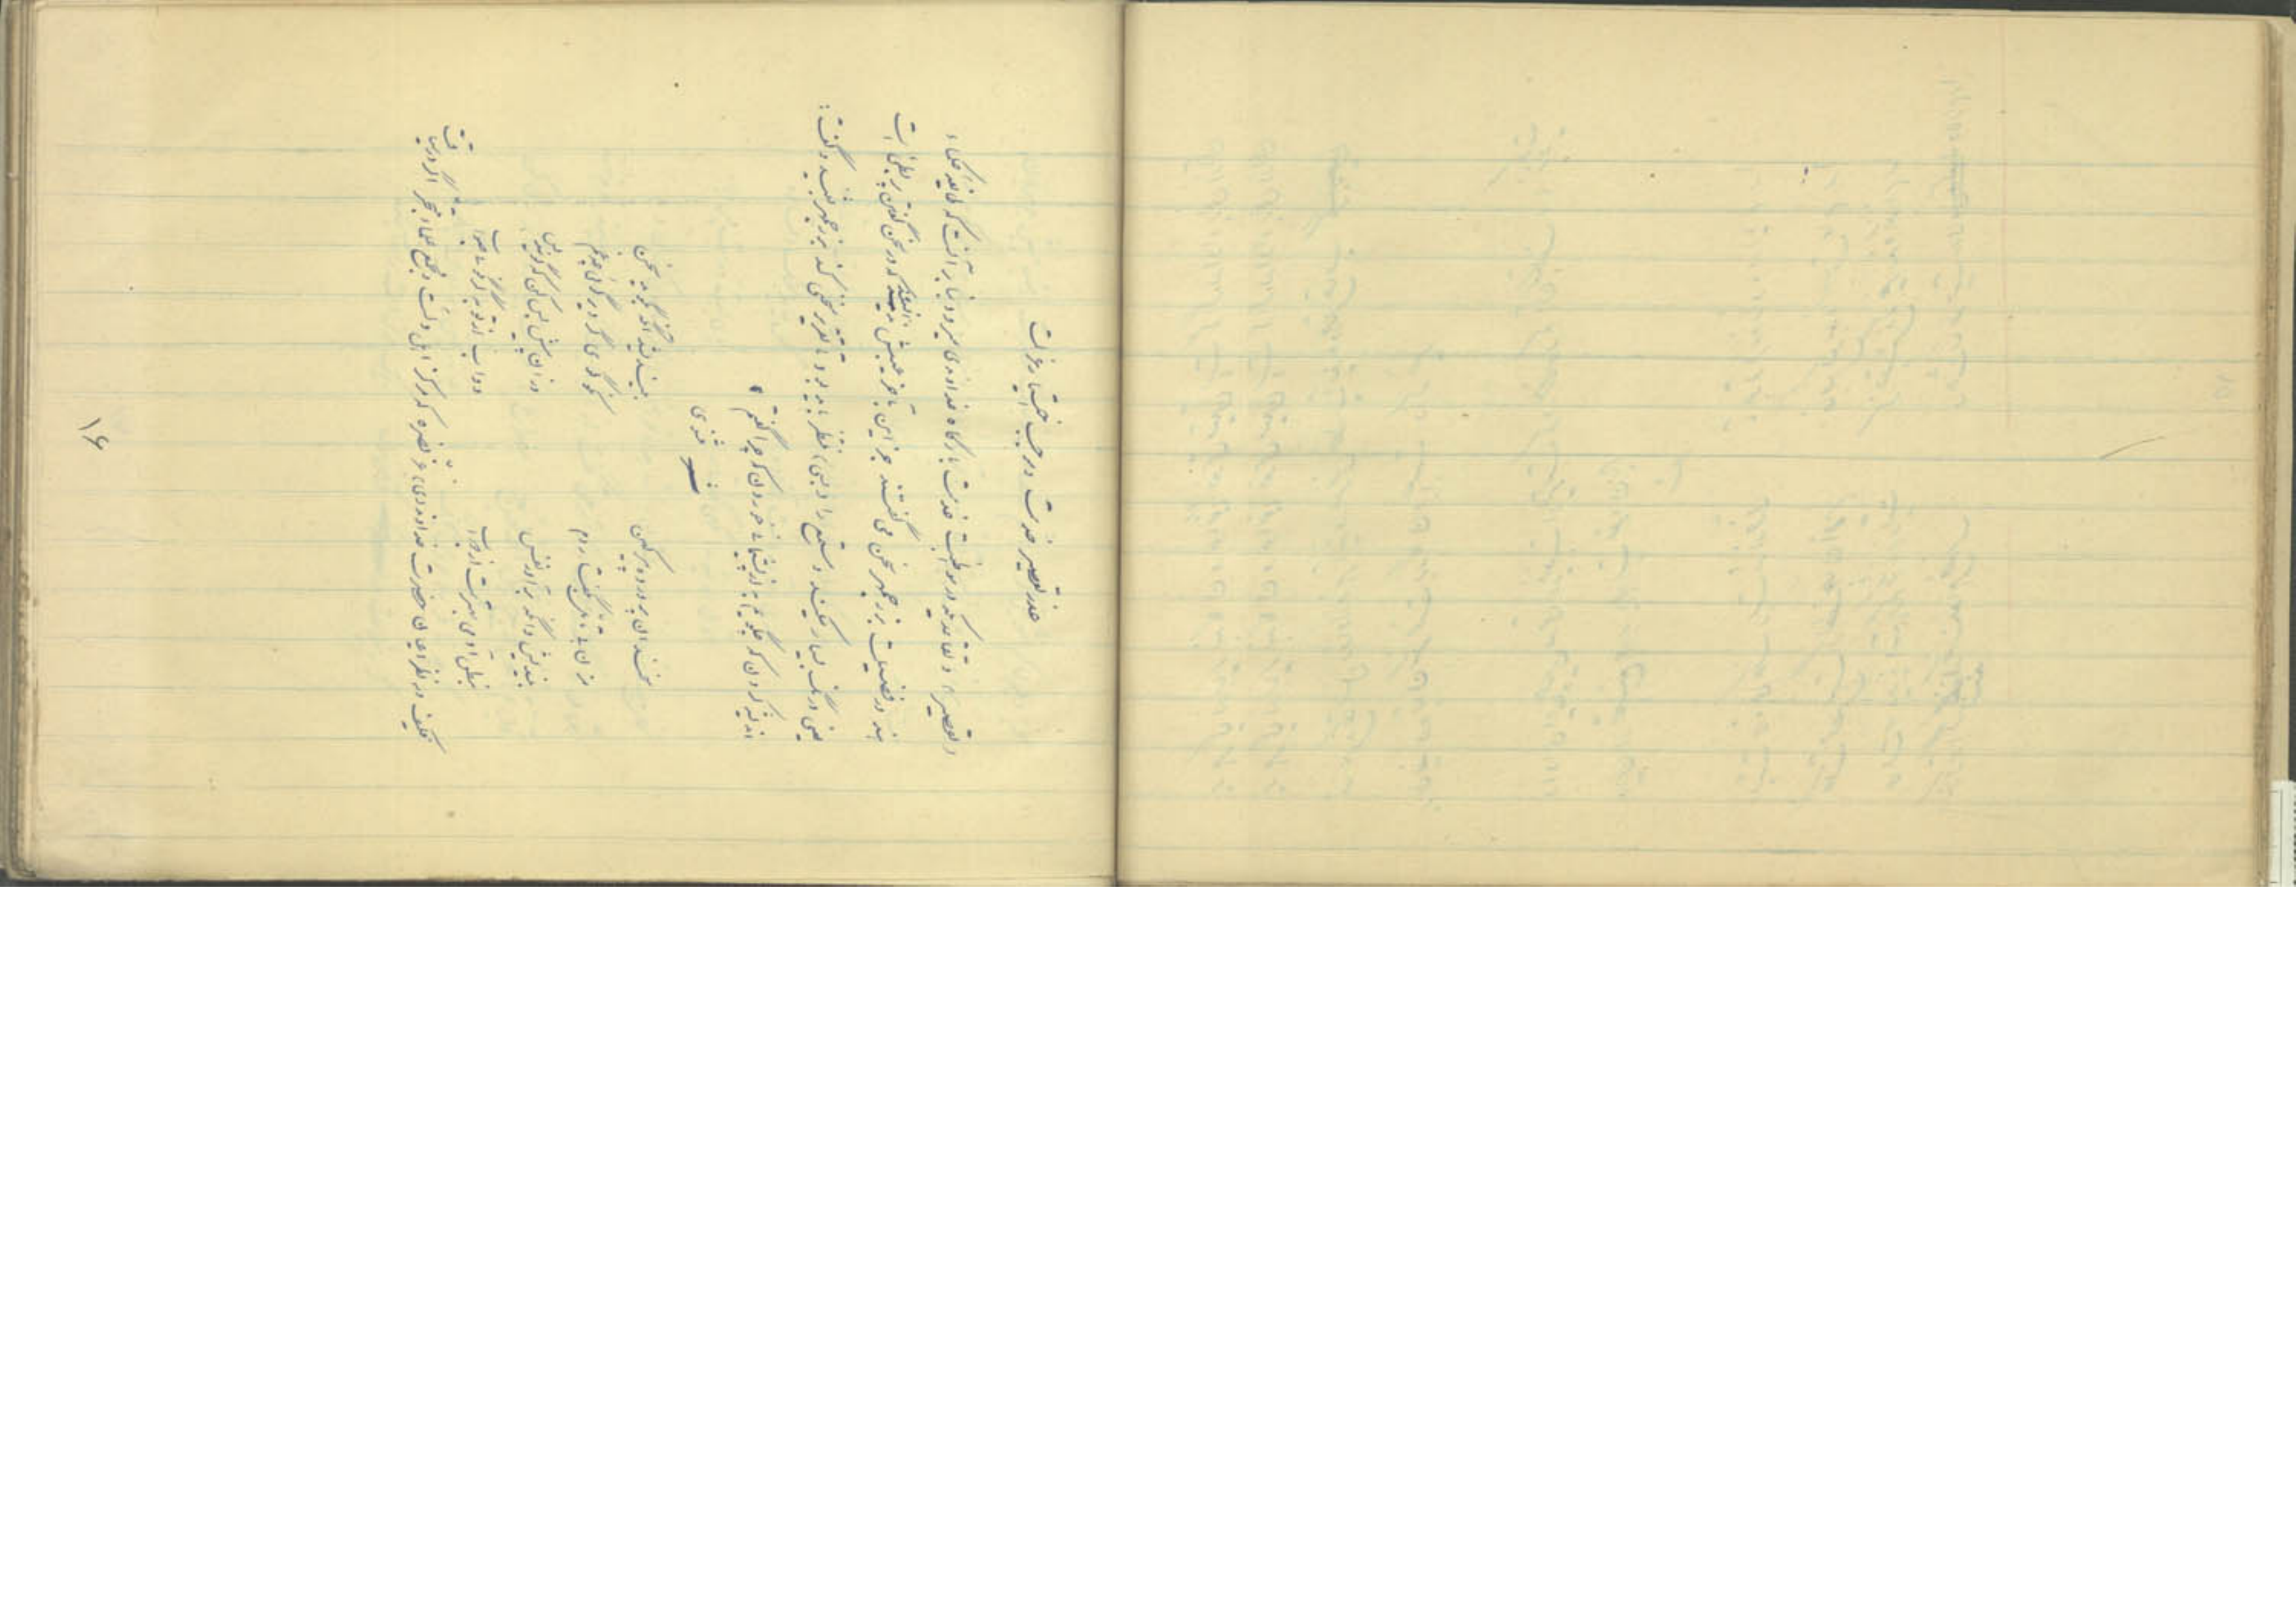 عذر تقصیر خدمت و موجب اختیار عزلت
تقصیر و تقاعدیکه در مواظبت خدمت بارگاه خداوندی میرود بنابر آنست که طایفه از حکماء
هند در فضیلت بزرجمهر سخن می گفتند جز این بآخر عیبش ندانستند که در سخن گفتن بطی است
یعنی درنگ بسیار میکند و مستمع را بسی منتظر باید بود تا تقریر سخنی کند بزرجمهر بشنید و گفت :
اندیشه کردن که چگویم به از پشیمانی خوردن که چرا گفتم
مثنوی
سخندان پرورده پیر کهن بیندیشد آنگه بگوید سخن
مزن بی تأمل بگفتار دم نکو گوی گر دیر گوئی چه غم
بیندیش و آنگه برآور نفس وزان پیش بس کن که گویند بس
بنطق آدمی بهتر است از دواب دواب از تو به گر نگوئی صواب
فکیف در نظر اعیان حضرت خداوندی عز نصره که مرکز اهل دلست و مجمع علماء متبحر اگر در سیاقت
۱۶